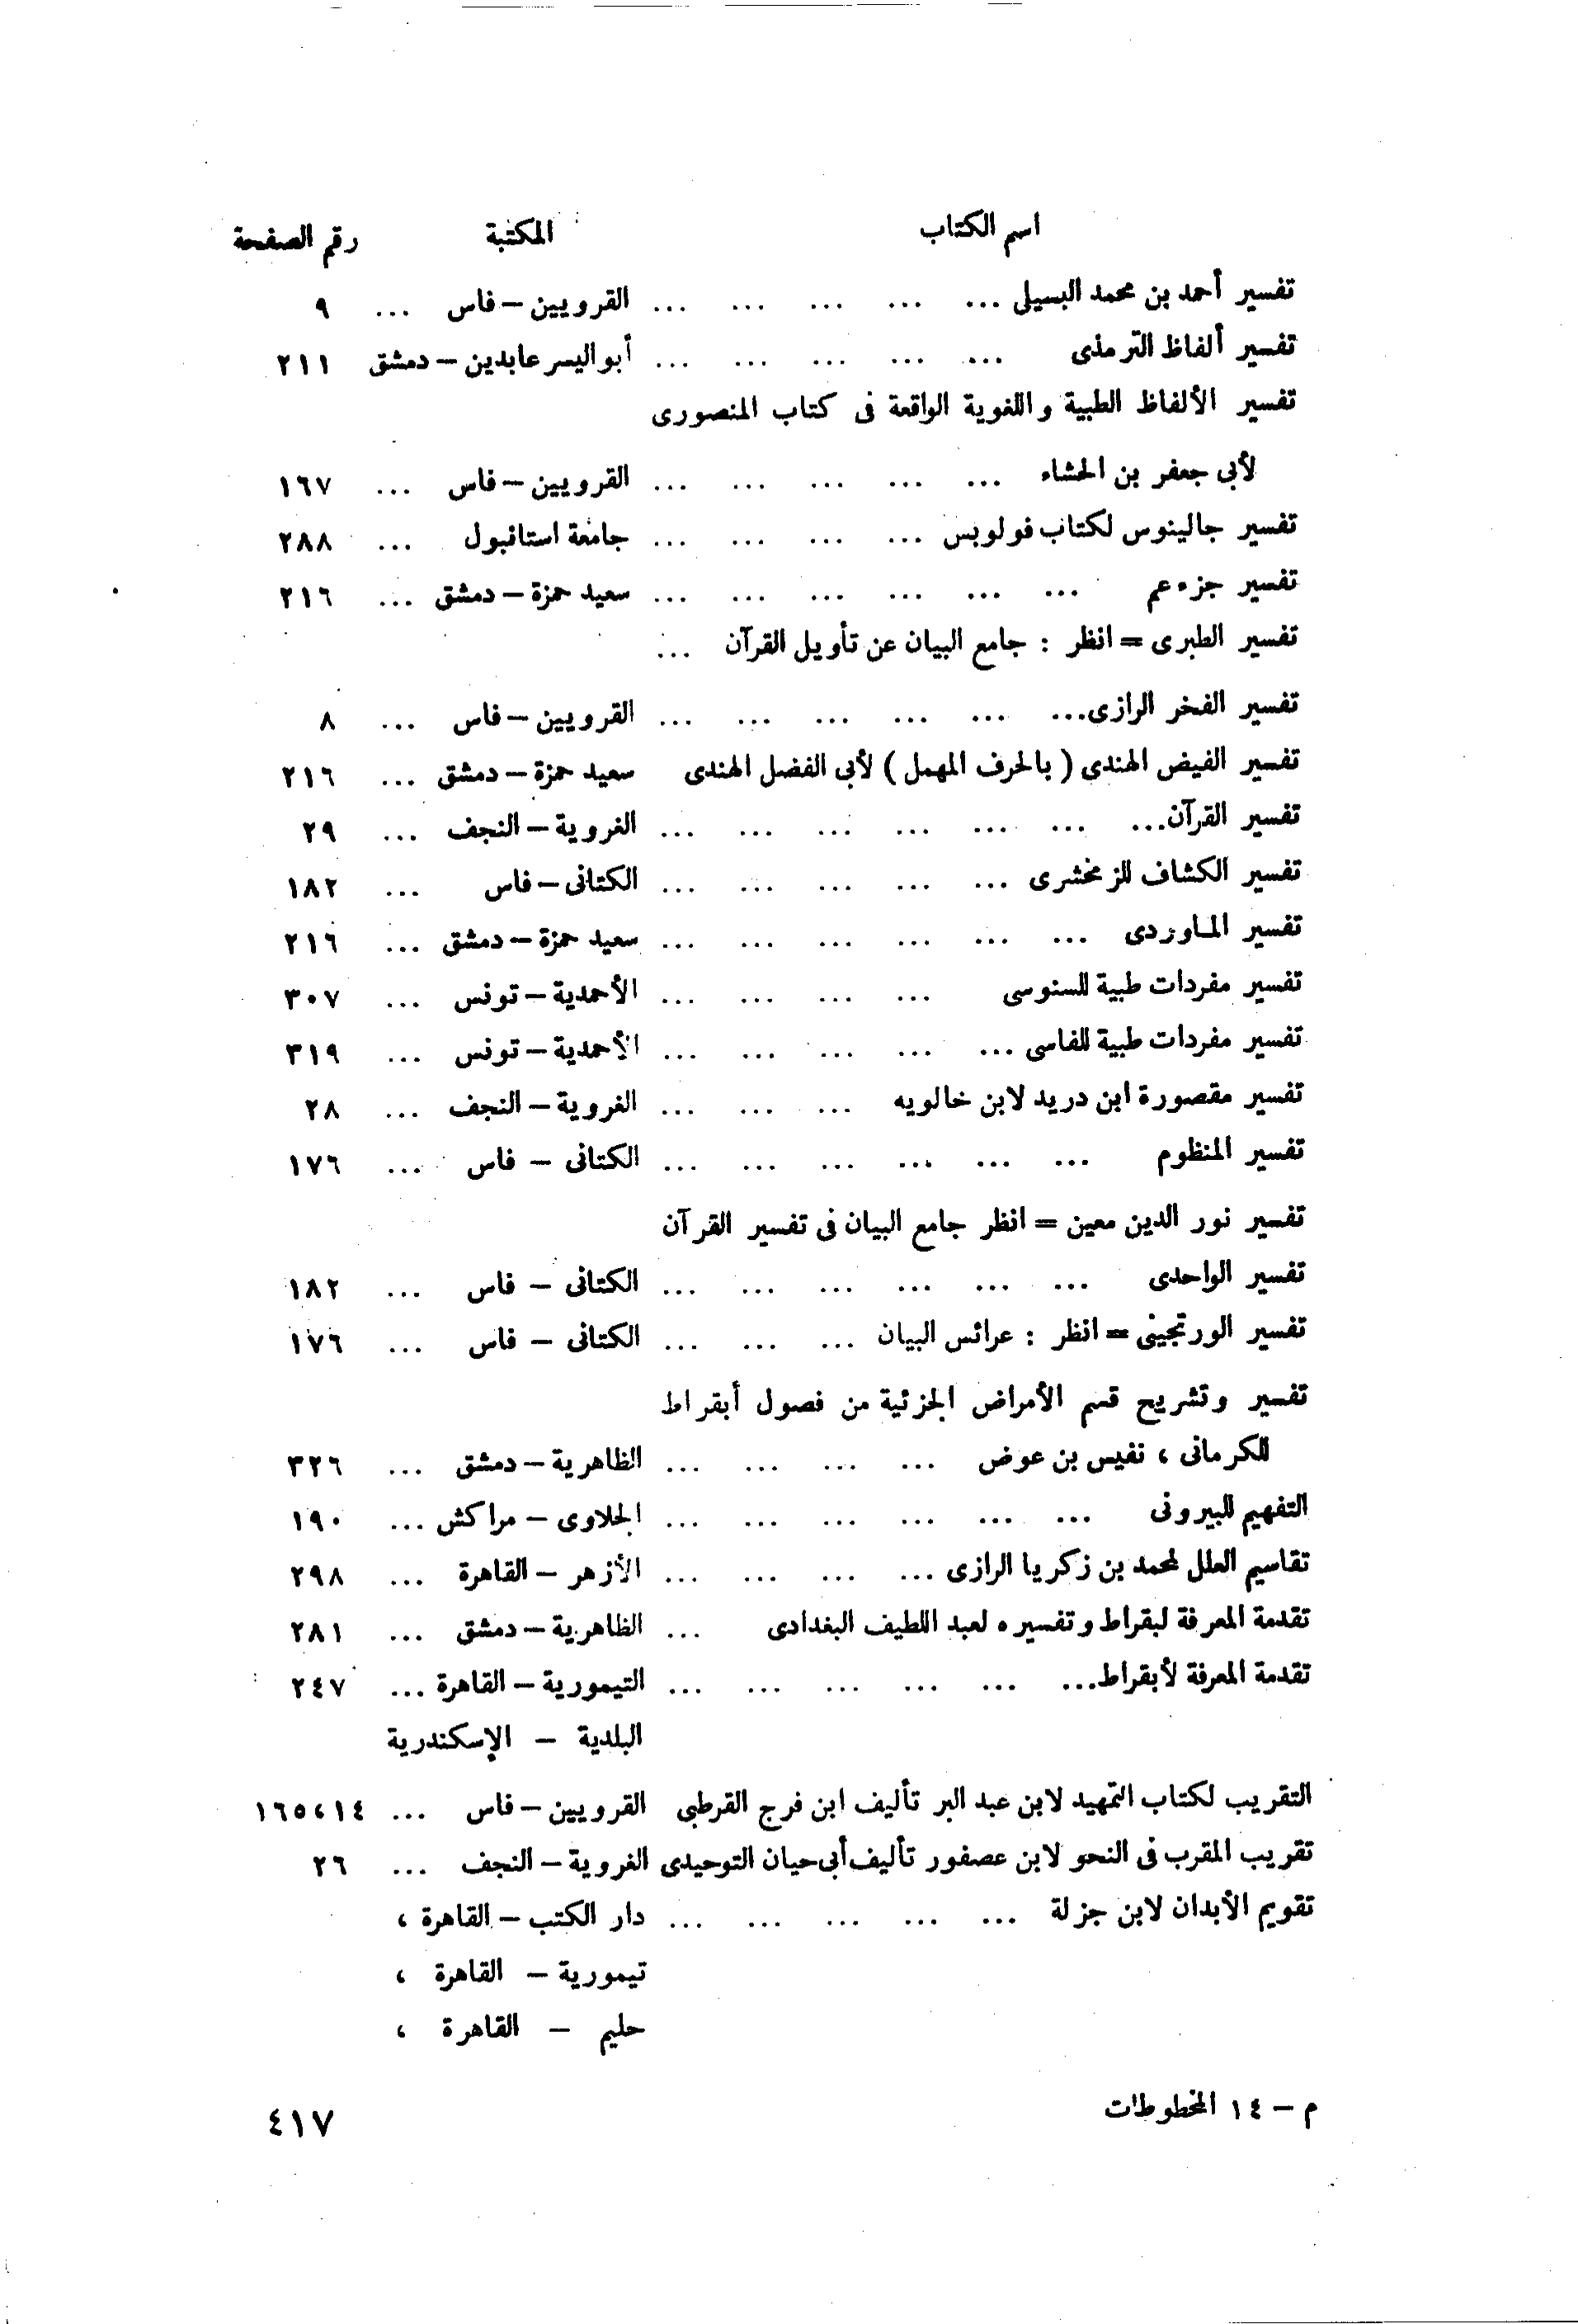 اسم الكتاب المكتبة رقم الصفحة
تفسير أحمد بن محمد البسيلى ... ... ... ... ... القرويين – فاس ... ٩
تفسير ألفاظ الترمذى ... ... ... ... ... أبو اليسر عابدين – دمشق ٢١١
تفسير الألفاظ الطبية واللغوية الواقعة فى كتاب المنصورى
لأبى جعفر بن الحشاء ... ... ... ... ... القرويين – فاس ... ١٦٧
تفسير جالينوس لكتاب فولوبس ... ... ... ... جامعة استانبول ... ٢٨٨
تفسير جزء عم ... ... ... ... ... ... سعيد حمزة – دمشق ... ٢١٦
تفسير الطبرى = انظر : جامع البيان عن تأويل القرآن ...
تفسير الفخر الرازى... ... ... ... ... ... القرويين – فاس ... ٨
تفسير الفيض الهندى ( بالحرف المهمل ) لأبى الفضل الهندى سعيد حمزة – دمشق ... ٢١٦
تفسير القرآن... ... ... ... ... ... ... الغروية – النجف ... ٢٩
تفسير الكشاف للزمخشرى ... ... ... ... ... الكتانى – فاس ... ١٨٢
تفسير المـاوردى ... ... ... ... ... ... سعيد حمزة – دمشق ... ٢١٦
تفسير مفردات طبية للسنوسى ... ... ... ... الأحمدية – تونس ... ٣٠٧
تفسير مفردات طبية للفاسى ... ... ... ... ... الأحمدية – تونس ... ٣١٩
تفسير مقصورة ابن دريد لابن خالويه ... ... ... الغروية – النجف ... ٢٨
تفسير المنظوم ... ... ... ... ... ... الكتانى – فاس ... ١٧٦
تفسير نور الدين معين = انظر جامع البيان فى تفسير القرآن
تفسير الواحدى ... ... ... ... ... ... الكتانى – فاس ... ١٨٢
تفسير الورتجينى = انظر : عرائس البيان ... ... ... الكتانى – فاس ... ١٧٦
تفسير وتشريح قسم الأمراض الجزئية من فصول أبقراط
للكرمانى ، نفيس بن عوض ... ... ... ... الظاهرية – دمشق ... ٣٢٦
التفهيم للبيرونى ... ... ... ... ... ... الجلاوى – مراكش ... ١٩٠
تقاسيم العلل لمحمد بن زكريا الرازى ... ... ... ... الأزهر – القاهرة ... ٢٩٨
تقدمة المعرفة لبقراط وتفسيره لعبد اللطيف البغدادى ... الظاهرية – دمشق ... ٢٨١
تقدمة المعرفة لأبقراط... ... ... ... ... ... التيمورية – القاهرة ... ٢٤٧
البلدية – الإسكندرية
التقريب لكتاب التمهيد لابن عبد البر تأليف ابن فرج القرطبى القرويين – فاس ... ١٤، ١٦٥
تقريب المقرب فى النحو لابن عصفور تأليف أبى حيان التوحيدى الغروية – النجف ... ٢٦
تقويم الأبدان لابن جزلة ... ... ... ... ... دار الكتب – القاهرة ،
تيمورية – القاهرة ،
حليم – القاهرة ،
م – ١٤ المخطوطات ٤١٧